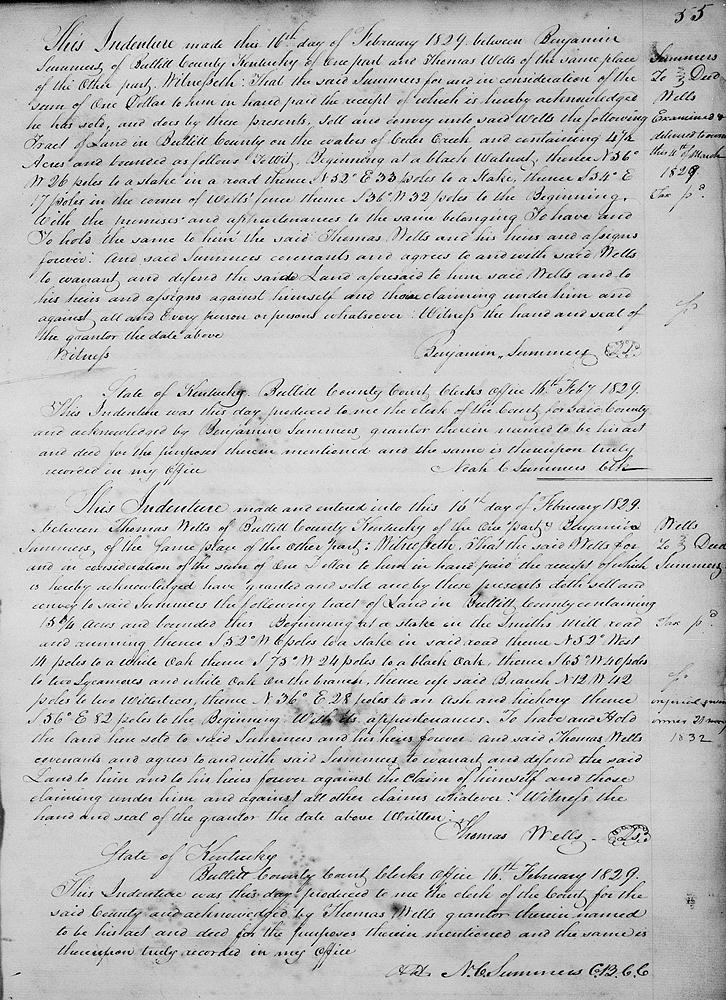 55
This Indenture made this 16th day of February 1829 between Benjamin
Summers, of Bullitt County Kentucky of One part and Thomas Wells of the same place
of the Other party. Witnesseth: That the said Summers for and in consideration of the
sum of One Dollar to him in hand paid the receipt of which is hereby acknowledged
he has sold, and does by these presents, sell and convey unto said Wells the following
Tract of Land in Bullitt County on the waters of Ceder Creek and containing 4¼
Acres and bounded as follows Towit, Beginning at a black Walnut, thence N 56°
W 26 poles to a stake in a road thence N 52° E 33 poles to a Stake, thence S 34° E
17 poles in the corner of Wells' fence thence S 36° W 32 poles to the Beginning.
With the premises and appurtenances to the same belonging To have and
To hold the same to him the said Thomas Wells and his heirs and assigns
forever. And said Summers covenants and agrees to and with said Wells
to warrant, and defend the said Land aforesaid to him said Wells and to
his heirs and assigns against himself and those claiming under him and
against all and Every person or persons whatsoever: Witness the hand and seal of
the grantor the date above
Witness Benjamin Summers
Summers
To Deed
Wells
Examined &
delivered to
this 4th of March
1829
Tax pd.
State of Kentucky. Bullitt County Court Clerks Office 16th Feby 1829.
This Indenture was this day produced to me the clerk of the Court for Said County
and acknowledged by Benjamin Summers grantor therein named to be his act
and deed for the purposes therein mentioned and the same is thereupon truly
recorded in my Office Noah C Summers Clk
This Indenture made and entered into this 16th day of February 1829.
between Thomas Wells of Bullitt County Kentucky of the One part & Benjamin
Summers, of the Same place of the Other part: Witnesseth, That the said Wells for
and in consideration of the sum of One Dollar to him in hand paid the receipt of which
is hereby acknowledged have granted and sold and by these presents doth sell and
convey to said Summers the following tract of Land in Bullitt County containing
15¾ Acres and bounded thus Beginning at a stake in the Smiths Mill road
and running thence S 52° W 6 poles to a stake in said road thence N 52° West
14 poles to a White Oak thence S 75° W 24 poles to a black Oak, thence S 65° W 40 poles
to two Sycamores and white Oak On the branch, thence up said Branch N 12 W 42
poles to two Willowtrees, thence N 36° E 28 poles to an Ash and hickory thence
S 56° E 82 poles to the Beginning With its appurtenances. To have and Hold
the land here sold to said Summers and his heirs forever. And said Thomas Wells
covenants and agrees to and with said Summers to warrant and defend the said
Land to him and to his heirs forever against the Claim of himself and those
claiming under him and against all other claims whatever: Witness the
hand and seal of the grantor the date above Written.
Thomas Wells
Wells
To Deed
Summers
Tax pd
1832
State of Kentucky
Bullitt County Court Clerks Office 16th February 1829.
This Indenture was this day produced to me the clerk of the Court for the
said County and acknowedged by Thomas Wells grantor therein named
to be his act and deed for the purposes therein mentioned and the same is
thereupon truly recorded in my Office
N. C Summers C. B. C. C